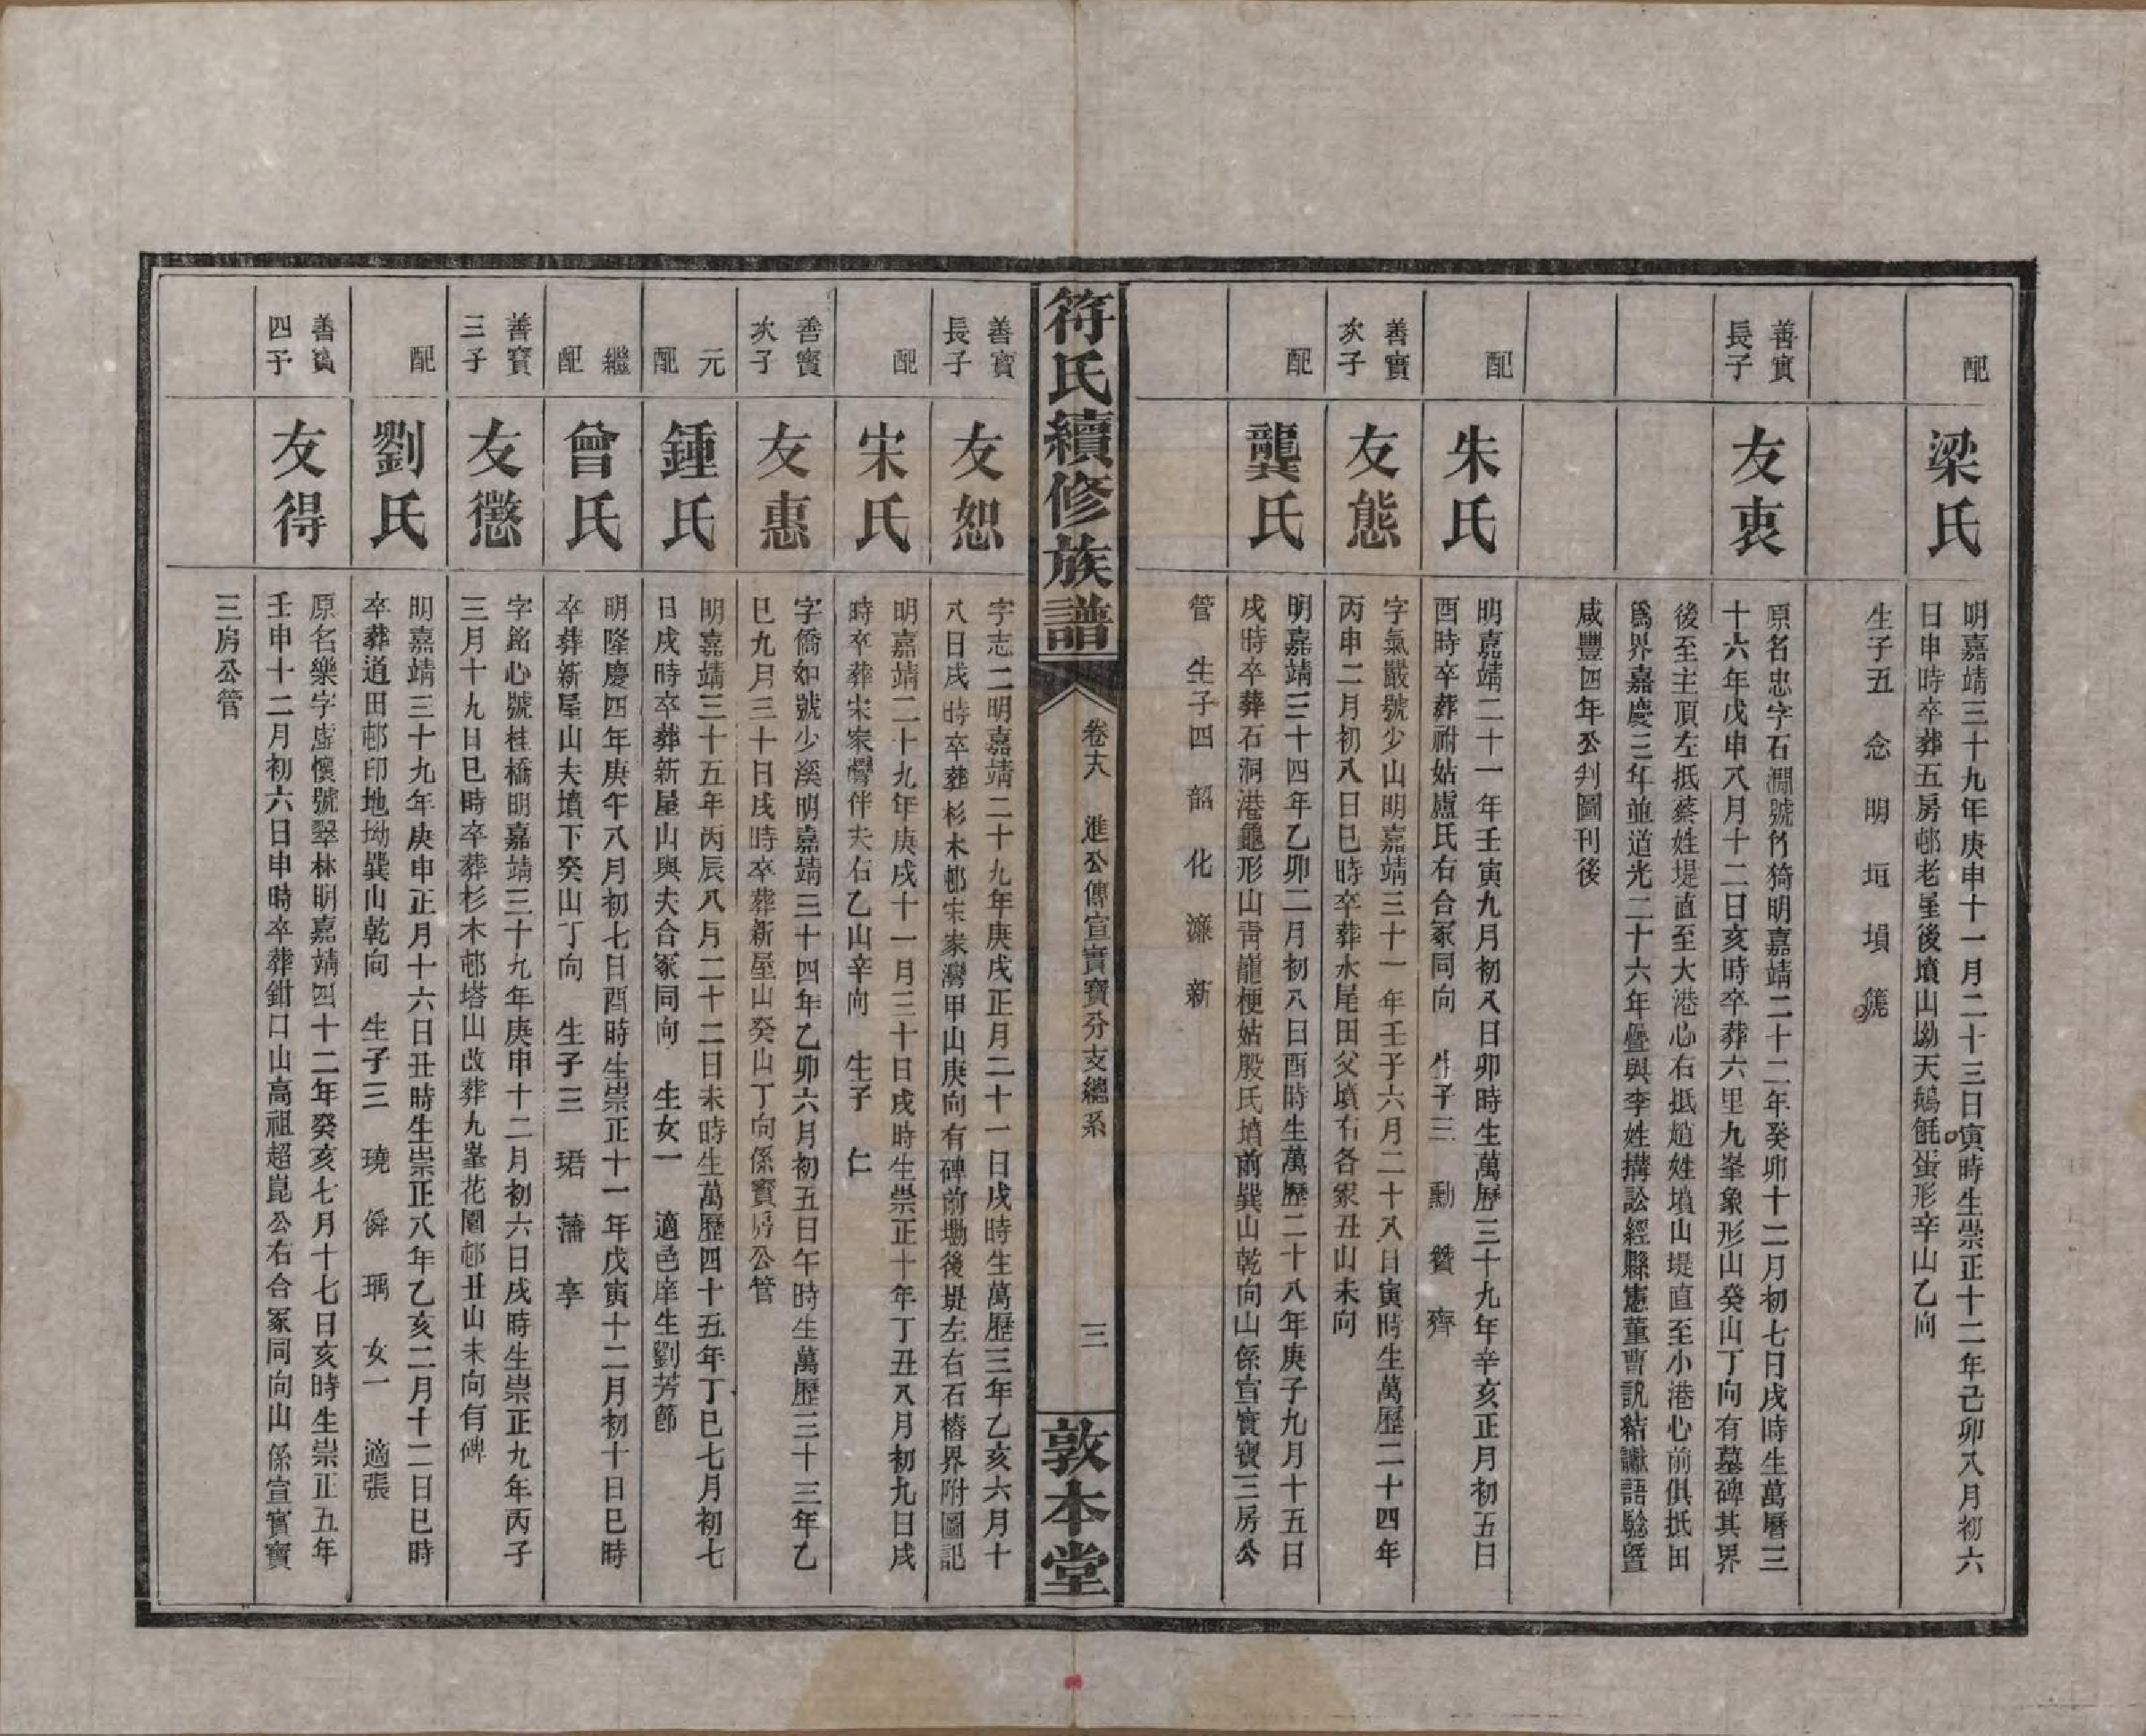 配
梁氏
明嘉靖三十九年庚申十一月二十三日寅時生崇正十二年己卯八月初六
日申時卒葬五房邨老屋後墳山坳天鵝毻蛋形辛山乙向
生子五 念 明 垣 塤 篪
善實
長子
友衷
原名忠字石澗號竹猗明嘉靖二十二年癸卯十二月初七日戌時生萬曆三
十六年戊申八月十二日亥時卒葬六里九峯象形山癸山丁向有墓碑其界
後至主頂左抵蔡姓堤直至大港心右抵趙姓墳山堤直至小港心前俱抵田
為界嘉慶三年並道光二十六年疊與李姓搆訟經縣憲董曹訊結讞語騐暨
咸豐四年公判圖刊後
配
朱氏
明嘉靖二十一年壬寅九月初八日卯時生萬歷三十九年辛亥正月初五日
酉時卒葬祔姑盧氏右合冢同向 生子三 勳 贊 齊
善實
次子
友態
字氣嚴號少山明嘉靖三十一年壬子六月二十八日寅時生萬歷二十四年
丙申二月初八日巳時卒葬水尾田父墳右各冢丑山未向
配
龔氏
明嘉靖三十四年乙卯二月初八日酉時生萬歷二十八年庚子九月十五日
戌時卒葬石洞港龜形山青龍梗姑殷氏墳前巽山乾向山係宣實寶三房公
管 生子四 韶 化 濂 新
符氏續修族譜
卷十八 進公傳宣實寶分支總系
三
敦本堂
善寶
長子
友恕
字志二明嘉靖二十九年庚戌正月二十一日戌時生萬歷三年乙亥六月十
八日戌時卒葬杉木邨宋家灣甲山庚向有碑前塝後堤左右石樁界附圖記
配
宋氏
明嘉靖二十九年庚戌十一月三十日戌時生崇正十年丁丑八月初九日戌
時卒葬宋家灣伴夫右乙山辛向 生子 仁
善寶
次子
友惠
字僑如號少溪明嘉靖三十四年乙卯六月初五日午時生萬歷三十三年乙
巳九月三十日戌時卒葬新屋山癸山丁向係寶房公管
元
配
鍾氏
明嘉靖三十五年丙辰八月二十二日未時生萬歷四十五年丁巳七月初七
日戌時卒葬新屋山與夫合冢同向 生女一 適邑庠生劉芳節
繼
配
曾氏
明隆慶四年庚午八月初七日酉時生崇正十一年戊寅十二月初十日巳時
卒葬新屋山夫墳下癸山丁向 生子三 珺 藩 享
善寶
三子
友懲
字銘心號桂橋明嘉靖三十九年庚申十二月初六日戌時生崇正九年丙子
三月十九日巳時卒葬杉木邨塔山改葬九峯花園邨丑山未向有碑
配
劉氏
明嘉靖三十九年庚申正月十六日丑時生崇正八年乙亥二月十二日巳時
卒葬道田邨印地坳巽山乾向 生子三 璄 僯 瑀 女一 適張
善寶
四子
友得
原名樂字虛懷號翠林明嘉靖四十二年癸亥七月十七日亥時生崇正五年
壬申十二月初六日申時卒葬鉗口山高祖超崑公右合冢同向山係宣實寶
三房公管